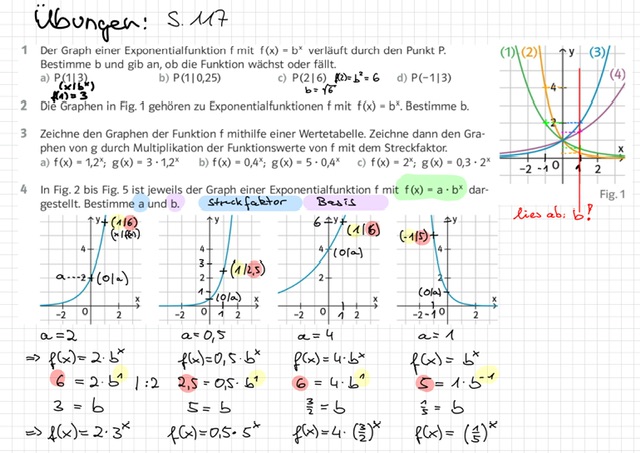 Übungen: S. 117
1 Der Graph einer Exponentialfunktion f mit f(x) = bˣ verläuft durch den Punkt P.
Bestimme b und gib an, ob die Funktion wächst oder fällt.
a) P(1|3) b) P(1|0,25) c) P(2|6) f(2)=b²=6 d) P(−1|3)
(x|bˣ) b=√6
f(1)=3
2 Die Graphen in Fig. 1 gehören zu Exponentialfunktionen f mit f(x) = bˣ. Bestimme b.
3 Zeichne den Graphen der Funktion f mithilfe einer Wertetabelle. Zeichne dann den Gra-
phen von g durch Multiplikation der Funktionswerte von f mit dem Streckfaktor.
a) f(x) = 1,2ˣ; g(x) = 3 · 1,2ˣ b) f(x) = 0,4ˣ; g(x) = 5 · 0,4ˣ c) f(x) = 2ˣ; g(x) = 0,3 · 2ˣ
4 In Fig. 2 bis Fig. 5 ist jeweils der Graph einer Exponentialfunktion f mit f(x) = a · bˣ dar-
gestellt. Bestimme a und b. Streckfaktor Basis
(1) (2) y (3)
(4)
4
2
x
−2 −1 0 1 2
Fig. 1
lies ab: b!
y (1|6)
(x|f(x))
4
a---2 (0|a)
x
−2 0 2
y
4
3
2 (1|2,5)
1 (0|a)
x
−2 0 1 2
6 y (1|6)
4 (0|a)
2
x
−2 0 1 2
y
(−1|5)
4
2
(0|a)
x
−2 −1 0 2
a=2 a=0,5 a=4 a=1
⇒ f(x)=2·bˣ f(x)=0,5·bˣ f(x)=4·bˣ f(x)=bˣ
6 = 2·b¹ |:2 2,5 = 0,5·b¹ 6 = 4·b¹ 5 = 1·b⁻¹
3 = b 5 = b 3/2 = b 1/5 = b
⇒ f(x)=2·3ˣ f(x)=0,5·5ˣ f(x)=4·(3/2)ˣ f(x)=(1/5)ˣ